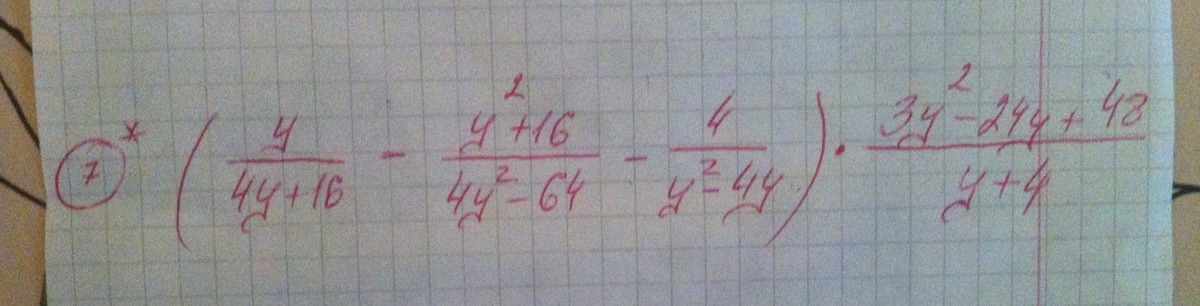 7* (y/(4y+16) - (y²+16)/(4y²-64) - 4/(y²-4y)) · (3y²-24y+48)/(y+4)